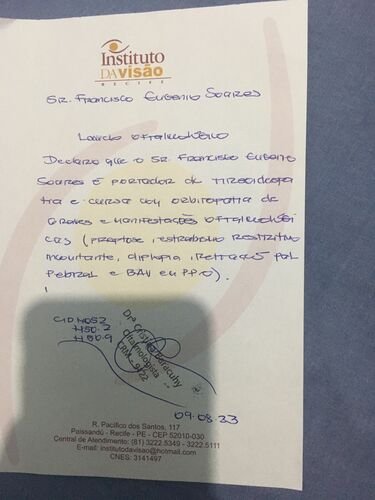 Instituto
DA visão
RECIFE
SR. FRANCISCO EUGENIO SOARES
LAUDO OFTALMOLÓGICO
DECLARO QUE O SR. FRANCISCO EUGENIO
SOARES É PORTADOR DE TIREOIDOPA
TIA E CURSA COM ORBITOPATIA DE
GRAVES E MANIFESTAÇÕES OFTALMOLÓGI
CAS (PROPTOSE, ESTRABISMO RESTRITIVO
INCOMITANTE, DIPLOPIA, RETRAÇÃO PAL
PEBRAL E BAV EM
CID H052
H50.2
H50.9
Drª Cristina Baracuhy
Oftalmologista
09.08.23
R. Pacífico dos Santos, 117
Paissandú - Recife - PE - CEP 52010-030
Central de Atendimento: (81) 3222.5349 - 3222.5111
E-mail: institutodavisao@hotmail.com
CNES: 3141497